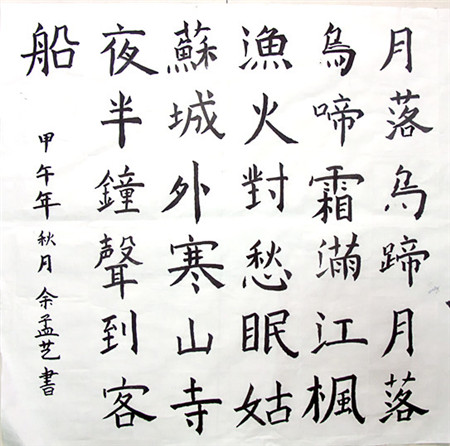 月落烏蹄月落
烏啼霜滿江楓
漁火對愁眠姑
蘇城外寒山寺
夜半鐘聲到客
船
甲午年秋月余孟艺書